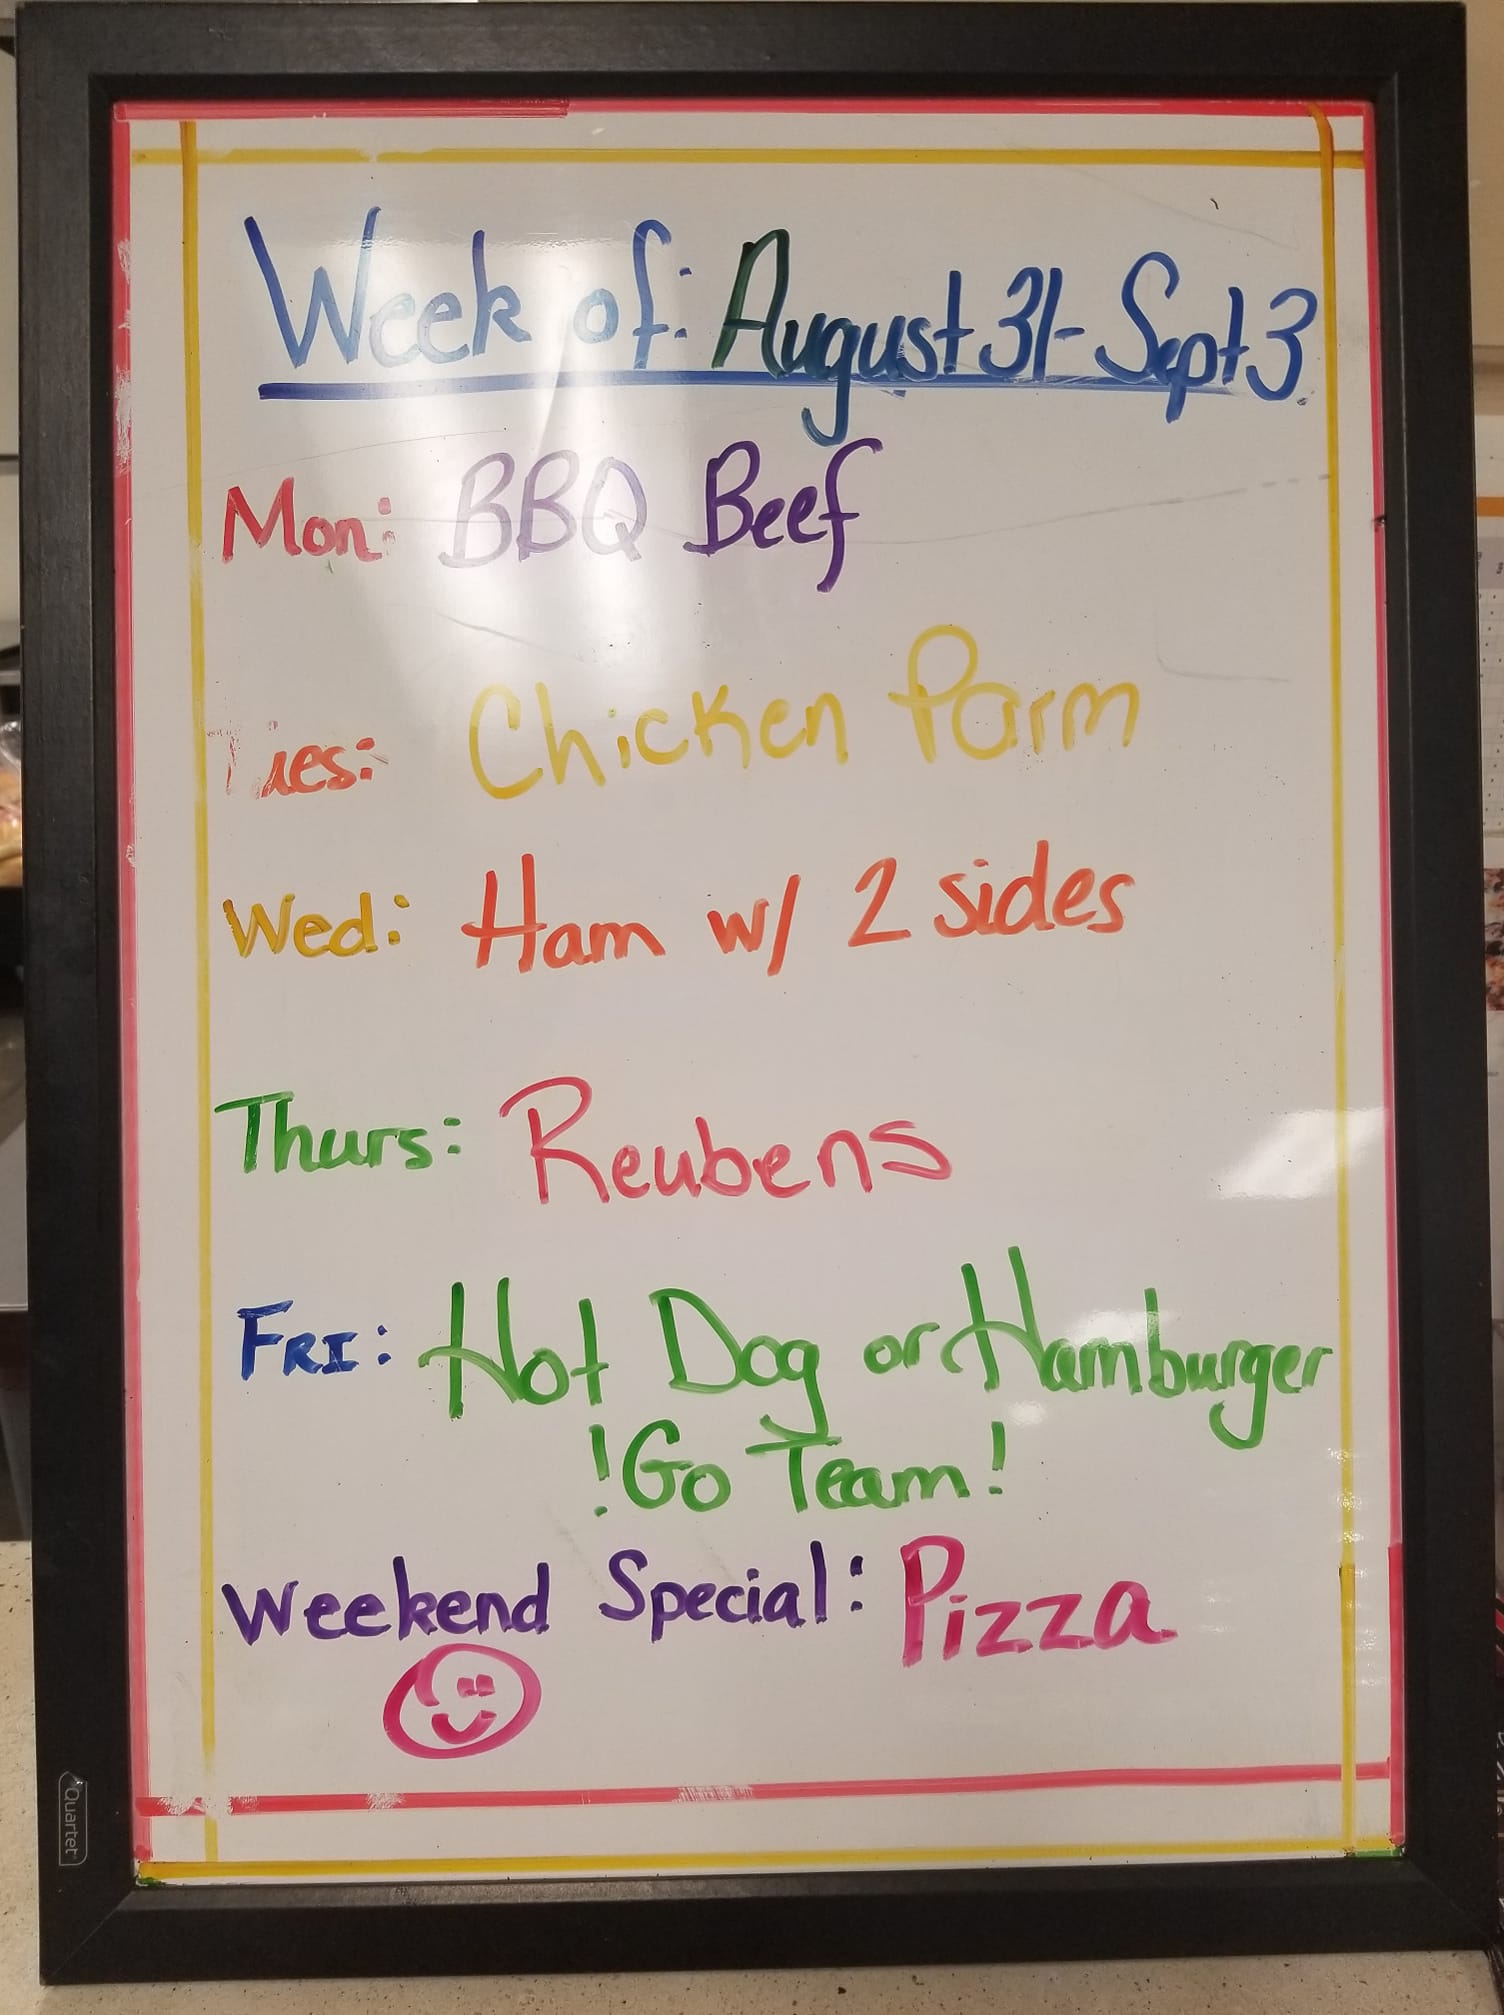 Week of: August 31-Sept 3
Mon: BBQ Beef
Tues: Chicken Parm
Wed: Ham w/ 2 sides
Thurs: Reubens
FRI: Hot Dog or Hamburger
!Go Team!
Weekend Special: Pizza
Quartet